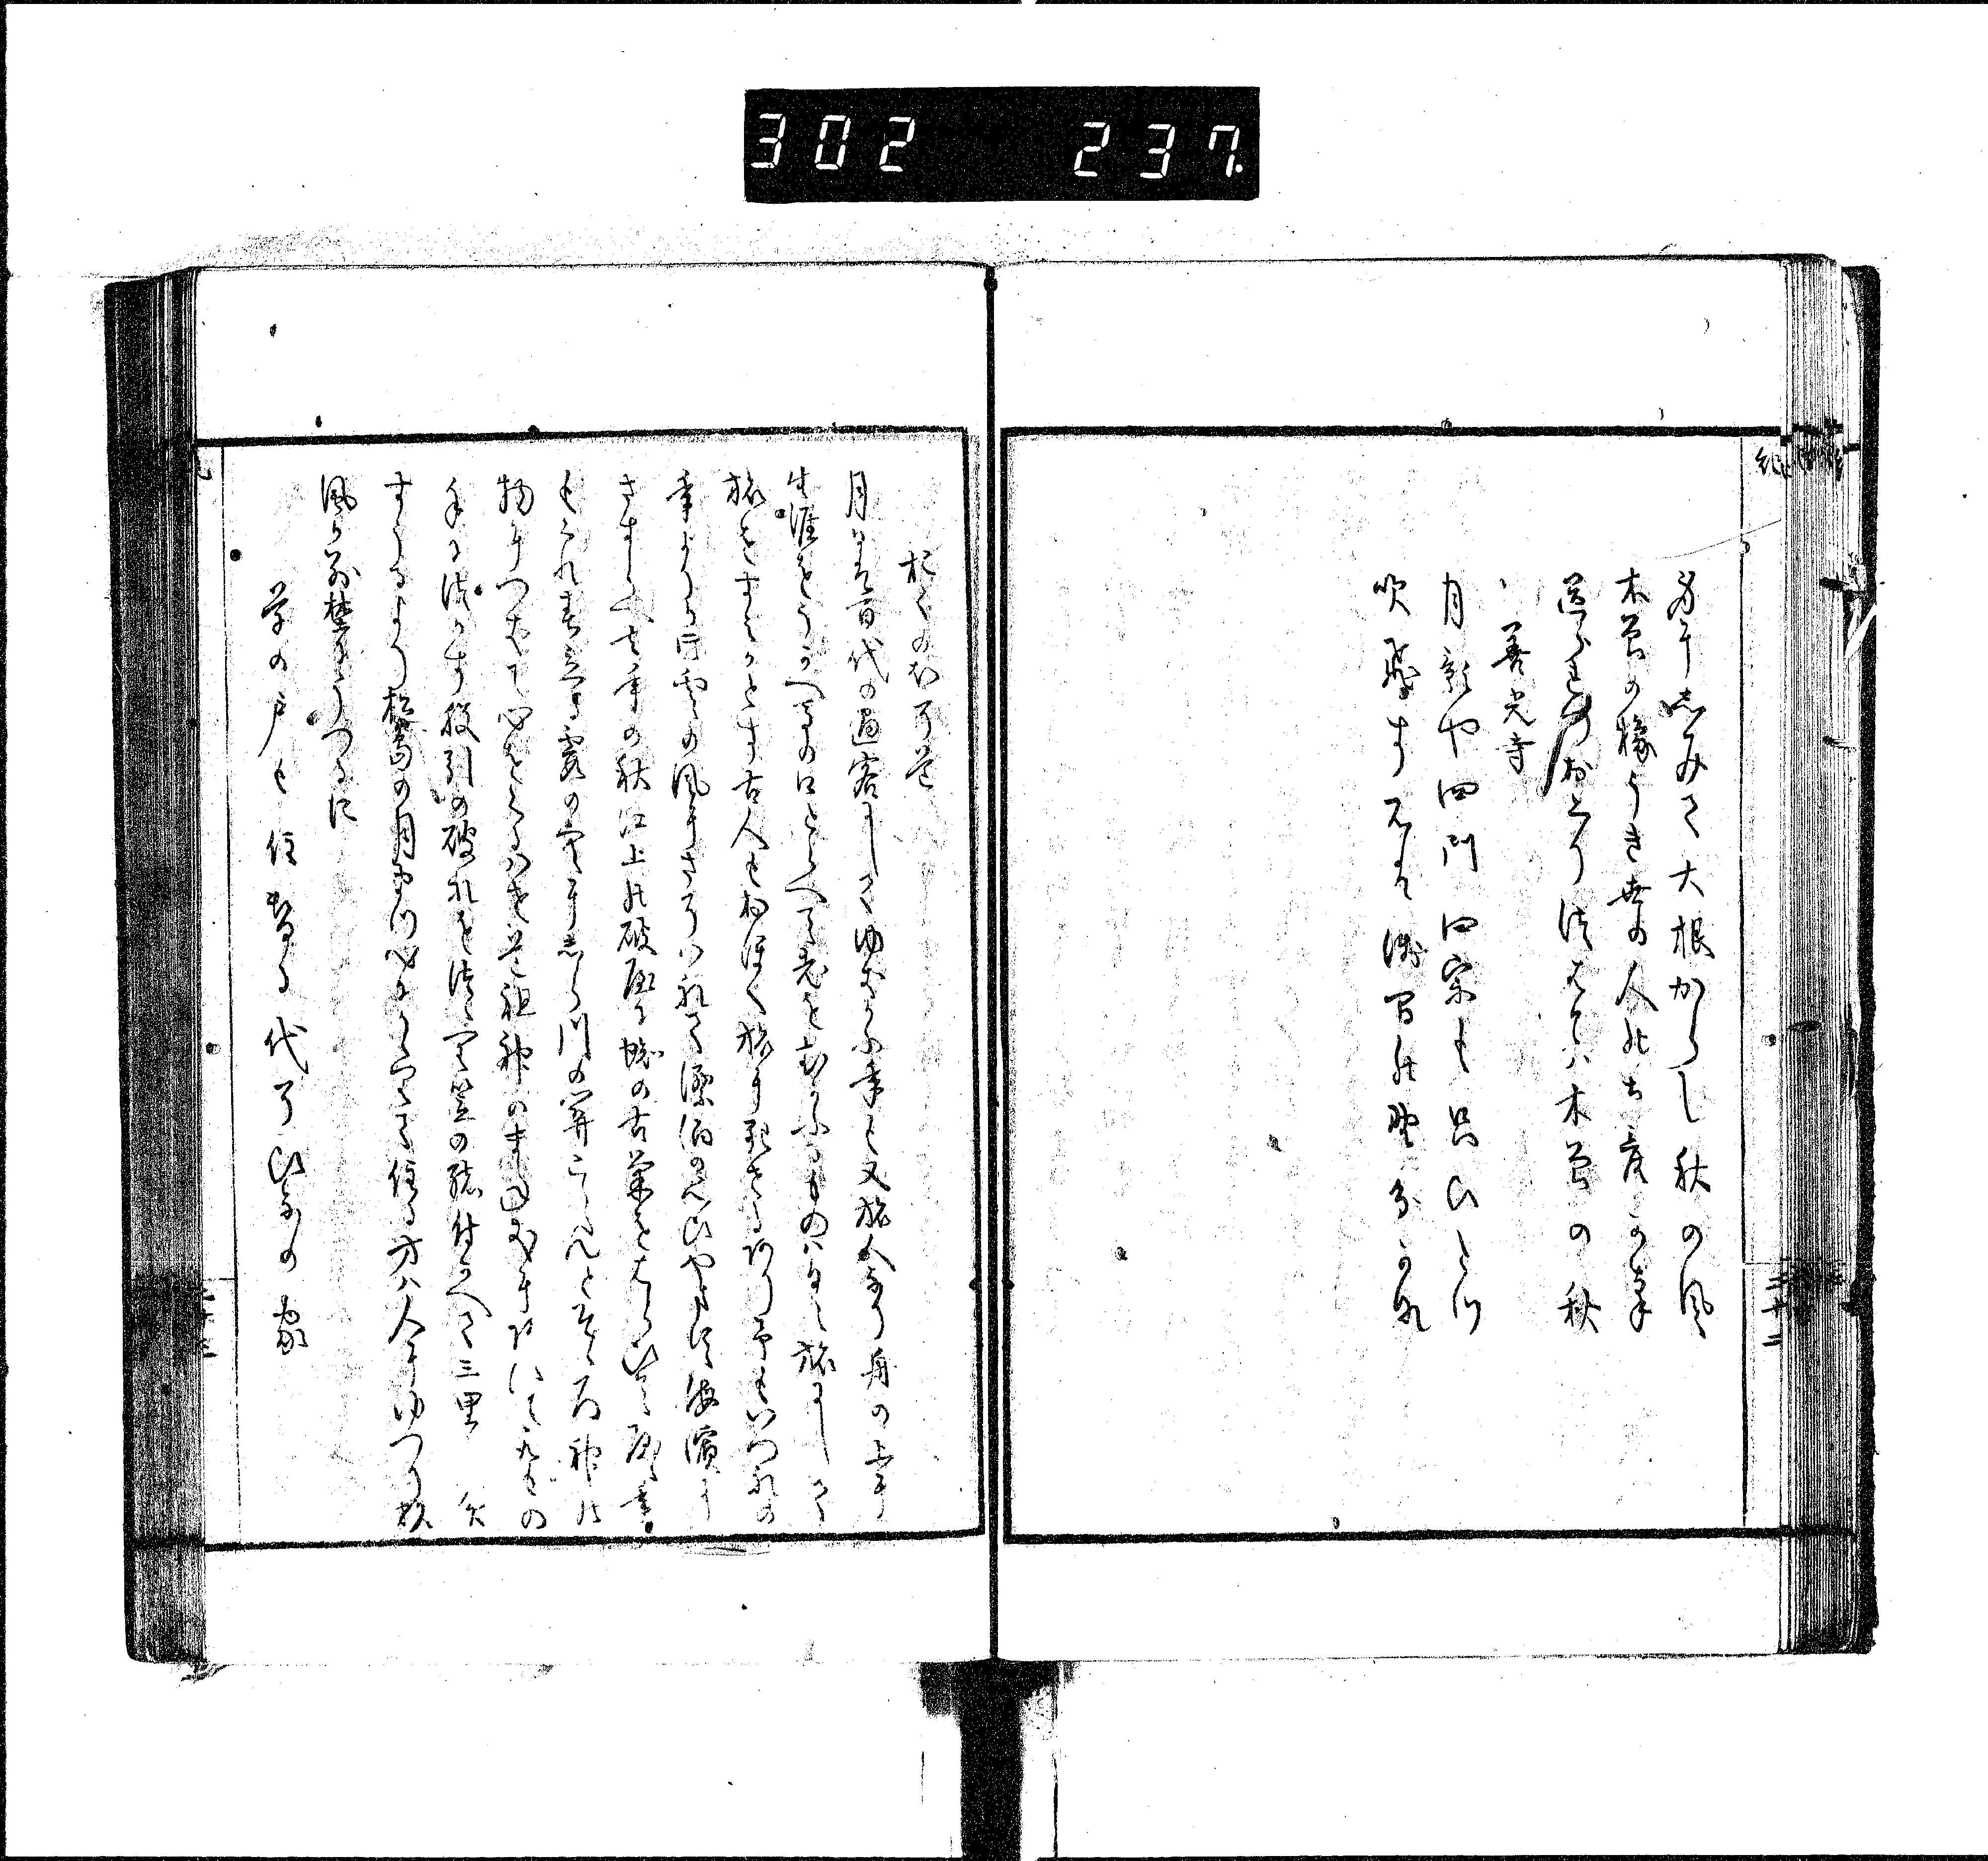 302 237
身にしみて大根からし秋の風
木曽の橡うき世の人の土産かな
送られつおくりつはては木曽の秋
善光寺
月影や四門四宗も只ひとつ
吹飛す石は浅間の野分かな
おくのほそ道
月日は百代の過客にしてゆきかふ年も又旅人なり舟の上に
生涯をうかへ馬の口とらへて老をむかふるものは日々旅にして
旅をすみかとす古人もおほく旅に死せるあり予もいつれの
年よりか片雲の風にさそはれて漂泊の思ひやます海濱に
さすらへ去年の秋江上の破屋に蜘の古巣をはらひてやゝ年
もくれ春立る霞の空にしら川の関こえんとそゝろ神の
物につきて心をくるはせ道祖神のまねきにあひて取もの
手につかす股引の破れをつゝり笠の緒付かへて三里 灸
すうるより松嶋の月まつ心にかゝりて住る方は人にゆつり杉
風か別墅にうつるに
草の戸も住替る代そひなの家